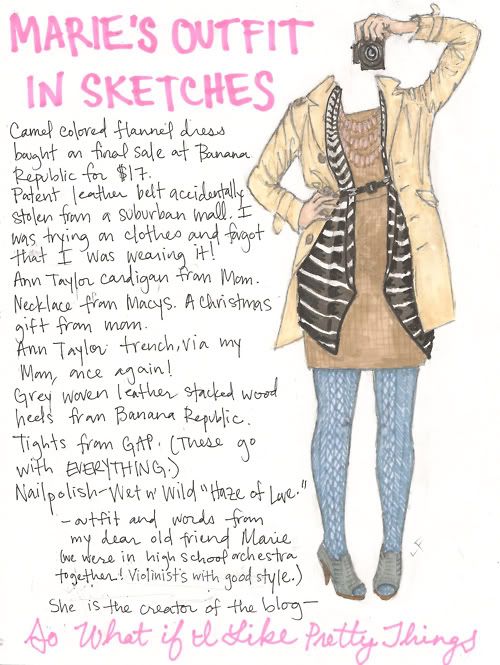 MARIE'S OUTFIT
IN SKETCHES
Camel colored flannel dress
bought on final sale at Banana
Republic for $17.
Patent leather belt accidentally
stolen from a suburban mall. I
was trying on clothes and forgot
that I was wearing it!
Ann Taylor cardigan from Mom.
Necklace from Macys. A Christmas
gift from mom.
Ann Taylor trench, via my
Mom, once again!
Grey woven leather stacked wood
heels from Banana Republic.
Tights from GAP. (These go
with EVERYTHING.)
Nailpolish-Wet n' Wild "Haze of Love."
- outfit and words from
my dear old friend Marie
(we were in high school orchestra
together! Violinist's with good style.)
She is the creator of the blog-
So What if I Like Pretty Things